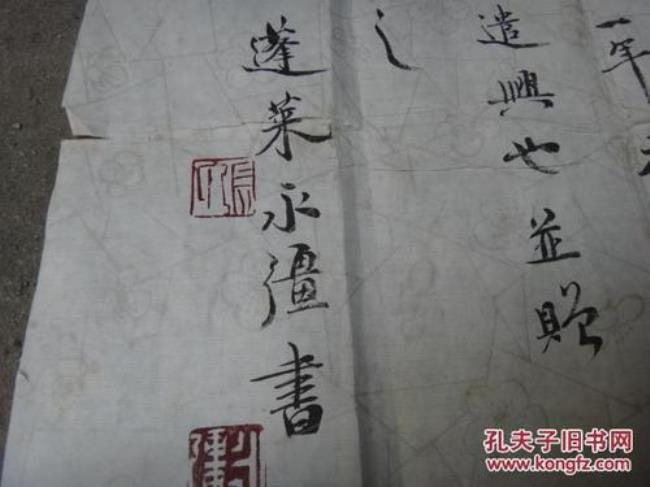 一年
遣興也並贈
之
蓬莱永彊書
孔夫子旧书网
www.kongfz.com